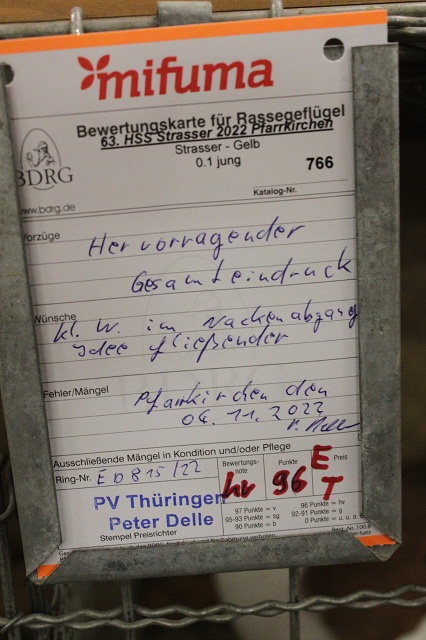 mifuma
Bewertungskarte für Rassegeflügel
63. HSS Strasser 2022 Pfarrkirchen
Strasser - Gelb
0.1 jung
766
BDRG
Katalog-Nr.
www.bdrg.de
Vorzüge
Hervorragender
Gesamteindruck
Wünsche
kl. W. im Nackenabgang
Idee fließender
Fehler/Mängel
Pfarrkirchen den
06.11.2022
Ausschließende Mängel in Kondition und/oder Pflege
Ring-Nr. ED 815/22
Bewertungs-
note
hv
Punkte
96
Preis
E
T
PV Thüringen
Peter Delle
Stempel Preisrichter
97 Punkte = v
95-93 Punkte = sg
90 Punkte = b
96 Punkte = hv
92-91 Punkte = g
0 Punkte = u.